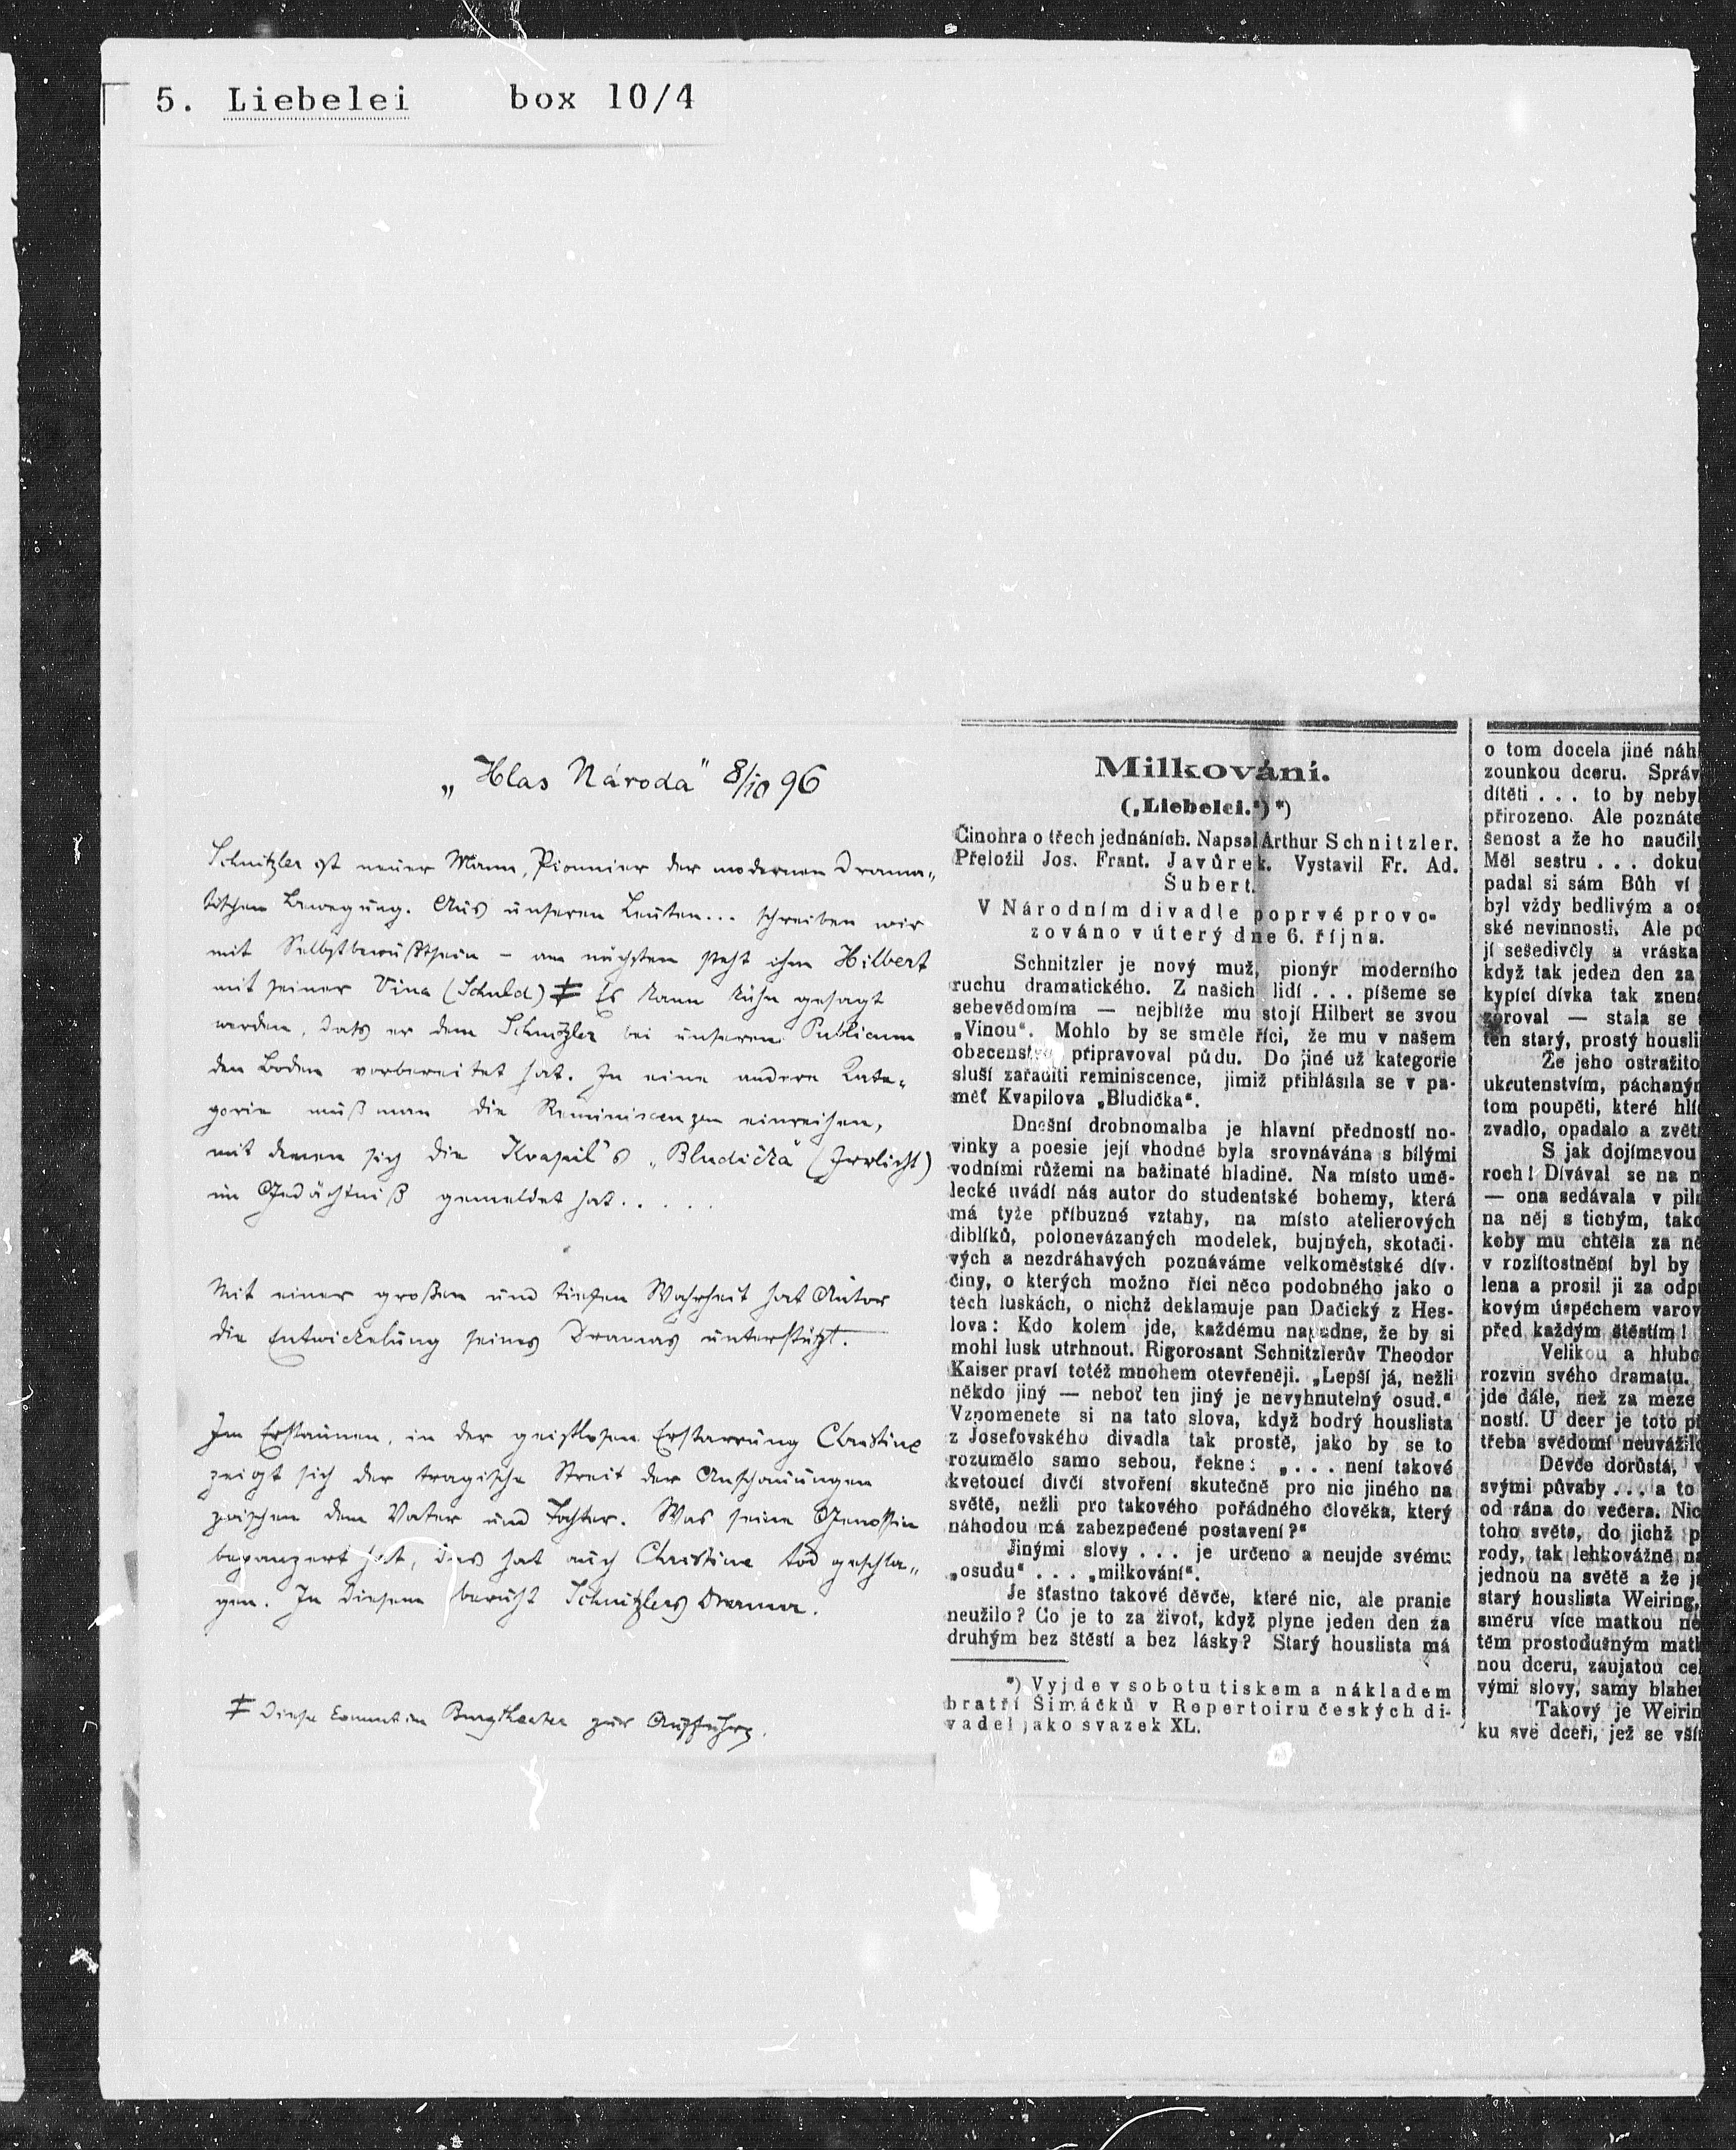 5. Liebelei box 10/4
„Hlas Národa" 8/10 96
Schnitzler ist neuer Mann, Pionnier der modernen Drama-
tischen Bewegung. Aus unseren Leuten... schreiben wir
mit Selbstbewußtsein – am nächsten steht ihm Hilbert
mit seiner Vina (Schuld) ‡ Es kann kühn gesagt
werden, dass er dem Schnitzler bei unserem Publicum
den Boden vorbereitet hat. In eine andere Kate-
gorie muß man die Reminiscenzen einreihen,
mit denen sich die Kvapil's „Bludička" (Irrlicht)
im Gedächtniß gemeldet hat.....
Mit einer großen und tiefen Wahrheit hat Autor
die Entwickelung seines Dramas unterstützt.
Im Erstaunen, in der geistlosen Erstarrung Christine
zeigt sich der tragische Streit der Anschauungen
zwischen dem Vater und Tochter. Was seine Genossin
bepanzert hat, das hat auch Christine tod geschla-
gen. In diesem beruht Schnitzlers Drama.
‡ Diese kommt im Burgtheater zur Aufführg.
Milkování.
(„Liebelei.") *)
Činohra o třech jednáních. Napsal Arthur Schnitzler.
Přeložil Jos. Frant. Javůrek. Vystavil Fr. Ad.
Šubert.
V Národním divadle poprvé provo-
zováno v úterý dne 6. října.
Schnitzler je nový muž, pionýr moderního
ruchu dramatického. Z našich lidí . . . píšeme se
sebevědomím — nejblíže mu stojí Hilbert se svou
„Vinou". Mohlo by se směle říci, že mu v našem
obecenstvu připravoval půdu. Do jiné už kategorie
sluší zařaditi reminiscence, jimiž přihlásila se v pa-
měť Kvapilova „Bludička".
Dnešní drobnomalba je hlavní předností no-
vinky a poesie její vhodně byla srovnávána s bílými
vodními růžemi na bažinaté hladině. Na místo umě-
lecké uvádí nás autor do studentské bohemy, která
má tytéž příbuzné vztahy, na místo atelierových
diblíků, polonevázaných modelek, bujných, skotači-
vých a nezdráhavých poznáváme velkoměstské div-
činy, o kterých možno říci něco podobného jako o
těch luskách, o nichž deklamuje pan Dačický z Hes-
lova: Kdo kolem jde, každému napadne, že by si
mohl lusk utrhnout. Rigorosant Schnitzlerův Theodor
Kaiser praví totéž mnohem otevřeněji. „Lepší já, nežli
někdo jiný — neboť ten jiný je nevyhnutelný osud."
Vzpomenete si na tato slova, když bodrý houslista
z Josefovského divadla tak prostě, jako by se to
rozumělo samo sebou, řekne: „. . . není takové
kvetoucí dívčí stvoření skutečně pro nic jiného na
světě, nežli pro takového pořádného člověka, který
náhodou má zabezpečené postavení?"
Jinými slovy . . . je určeno a neujde svému
„osudu" . . . „milkování".
Je šťastno takové děvče, které nic, ale pranic
neužilo? Co je to za život, když plyne jeden den za
druhým bez štěstí a bez lásky? Starý houslista má
*) Vyjde v sobotu tiskem a nákladem
bratří Šimáčků v Repertoiru českých di-
vadel jako svazek XL.
o tom docela jiné náh
zounkou dceru. Správ
dítěti . . . to by neby
přirozeno. Ale poznáte
šenost a že ho naučil
Měl sestru . . . doku
padal si sám Bůh ví
byl vždy bedlivým a o
ské nevinnosti. Ale po
jí sešedivěly a vráska
když tak jeden den za
kypící dívka tak znen
zoroval — stala se
ten starý, prostý housli
Že jeho ostražito
ukrutenstvím, páchaným
tom poupěti, které hlí
zvadlo, opadalo a zvět
S jak dojímavou
roch! Dívával se na n
— ona sedávala v pil
na něj s tichým, tako
keby mu chtěla za ně
v rozlítostnění byl by
lena a prosil ji za odp
kovým úspěchem varov
před každým štěstím!
Velikou a hlubo
rozvin svého dramatu.
jde dále, než za meze
ností. U dcer je toto p
třeba svědomí neuvážil
Děvče dorůstá, v
svými půvaby . . . a to
od rána do večera. Nic
toho světa, do jichž p
rody, tak lehkovážně n
jednou na světě a že j
starý houslista Weiring,
směru více matkou ne
těm prostodušným matk
nou dceru, zaujatou cel
vými slovy, samy blahe
Takový je Weirin
ku své dceři, jež se vší